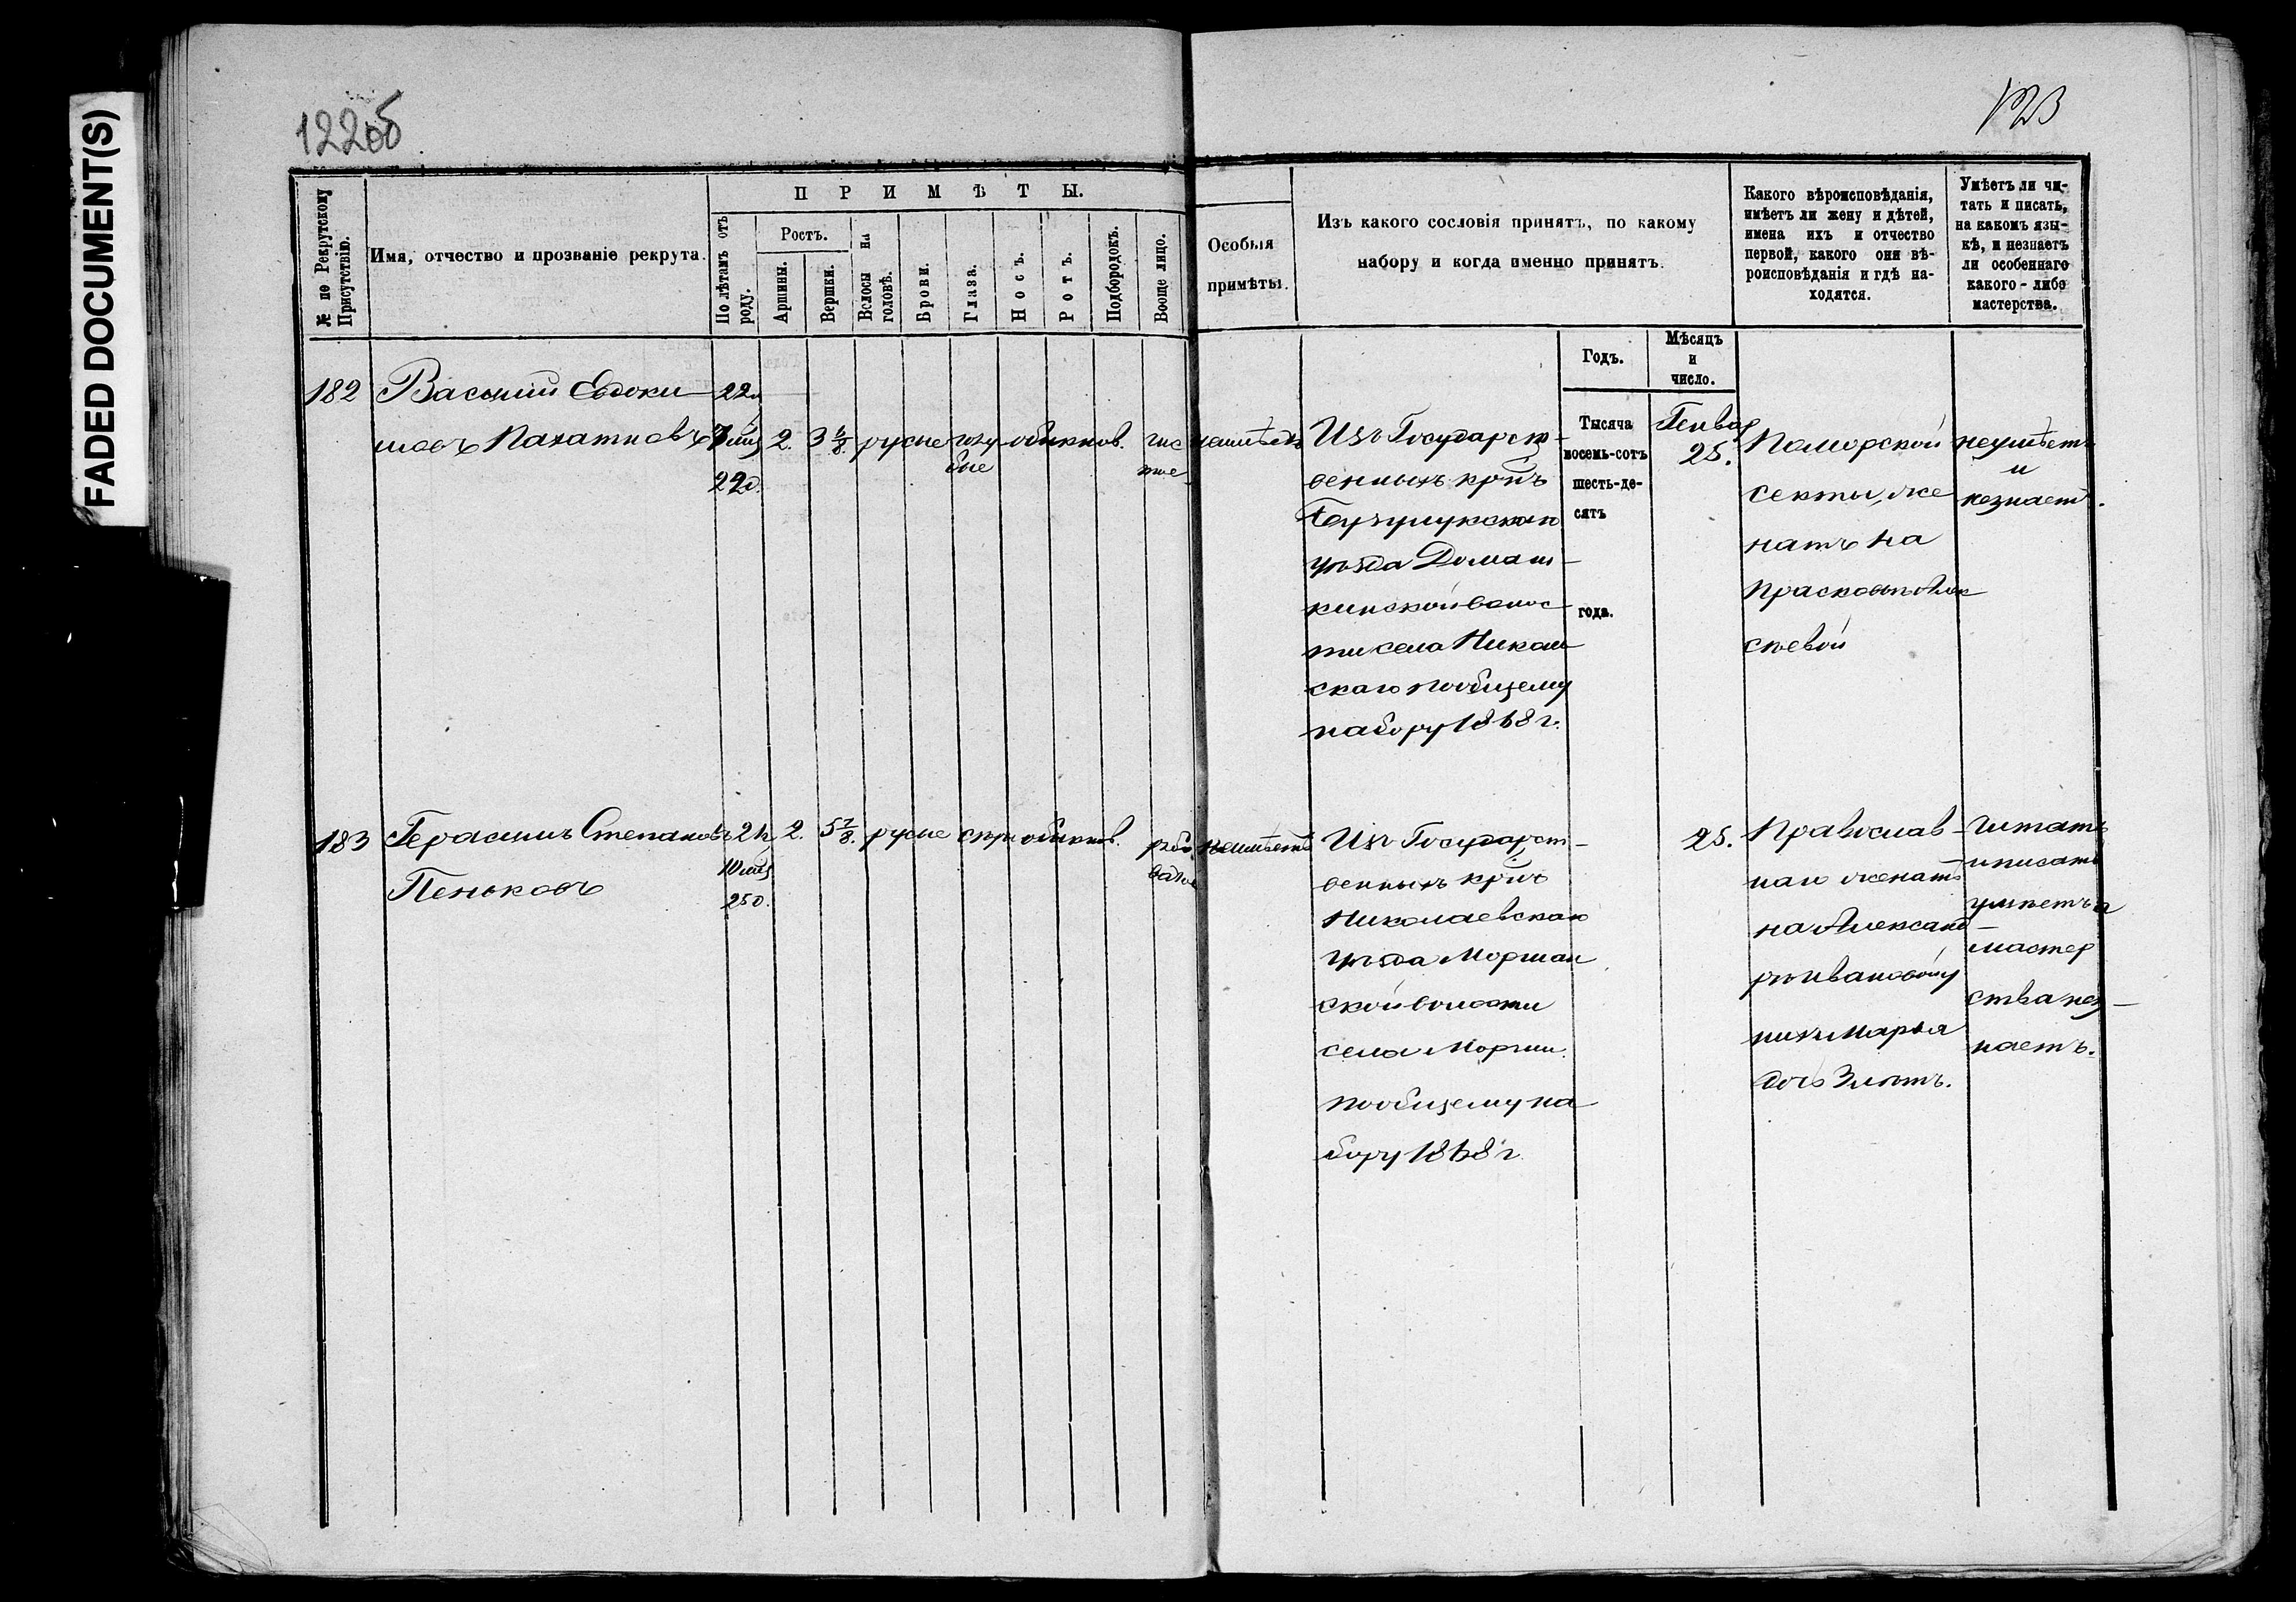 FADED DOCUMENT(S)
122об
123
№ по Рекрутскому Присутствію.
Имя, отчество и прозваніе рекрута.
ПРИМѢТЫ.
По лѣтамъ отъ роду.
Ростъ.
Аршины.
Вершки.
Волосы на головѣ.
Брови.
Глаза.
Носъ.
Ротъ.
Подбородокъ.
Вооще лицо.
Особыя
примѣты.
Изъ какого сословія принятъ, по какому
набору и когда именно принятъ.
Какого вѣроисповѣданія,
имѣетъ ли жену и дѣтей,
имена ихъ и отчество
первой, какого они вѣ-
роисповѣданія и гдѣ на-
ходятся.
Умѣетъ ли чи-
тать и писать,
на какомъ язы-
кѣ, и незнаетъ
ли особеннаго
какого-либо
мастерства.
Годъ.
Мѣсяцъ
и
число.
Тысяча
восемь-сотъ
шесть-де-
сятъ
года.
182
Василій Евдоки
мовъ Пахатновъ
22
7 мѣс
22д.
2.
3 6/8.
русые
голу
бые
обыкнов.
чис
тое
неимѣетъ
Изъ Государст-
венныхъ кр҃нъ
Бузулукскаго
уѣзда Домаш-
кинской волос-
ти села Николь
скаго по общему
набору 1868 г.
Генвар
25.
Поморской
секты, же
натъ на
Прасковьѣ Алек
сѣевой
неумѣетъ
и
незнаетъ.
183
Герасимъ Степановъ
Пеньковъ
2
10 мѣс
25д.
2.
5 7/8.
русые
сѣры
обыкнов.
рябо
ватое
неимѣетъ
Изъ Государст-
венныхъ кр҃нъ
Николаевскаго
уѣзда Моршан
ской волости
села Морши.
по общему на
бору 1868 г.
25.
Православ-
наго женатъ
на Александ-
рѣ Ивановой у
нихъ Марья
дочь 3 лѣтъ.
Читать
и писать
умѣетъ а
мастер
ства нез-
наетъ.